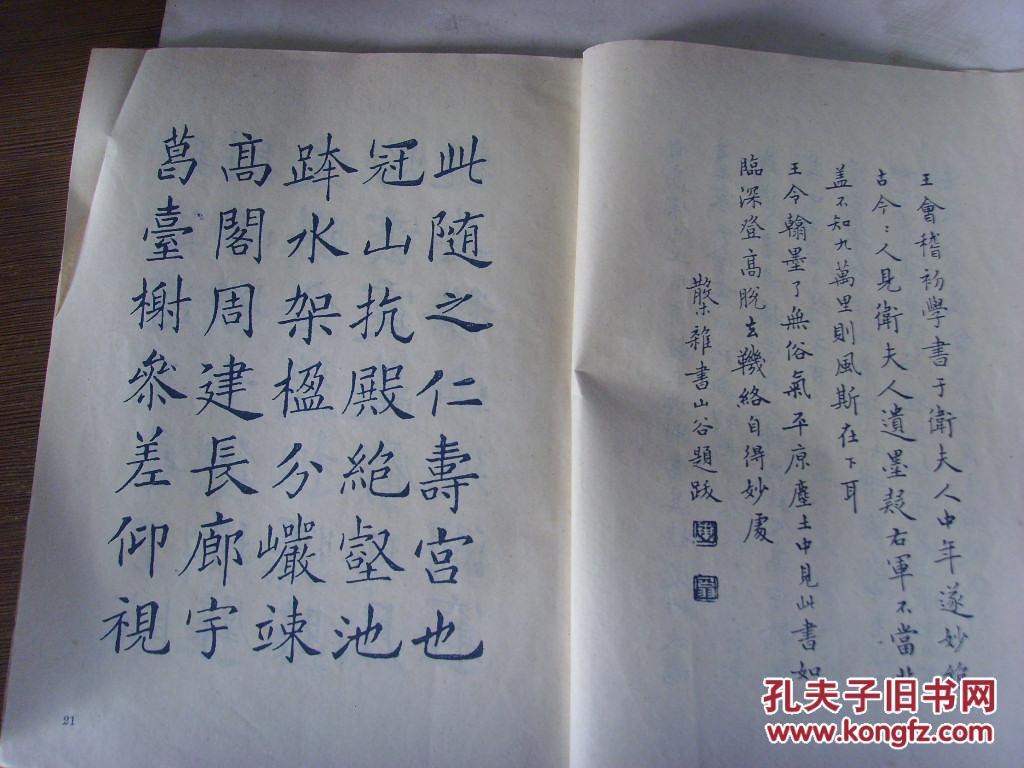 王會稽初學書于衛夫人中年遂妙絶
古今：人見衛夫人遺墨疑右軍不當
盖不知九萬里則風斯在下耳
王令翰墨了無俗氣平原塵土中見此書如
臨深登高脫去鞿絡自得妙處
雜書山谷題跋
此随之仁壽宫也
冠山抗殿絶壑池
跨水架楹分巗竦
高閣周建長廊宇
葛臺榭叅差仰視
21
孔夫子旧书网
www.kongfz.com